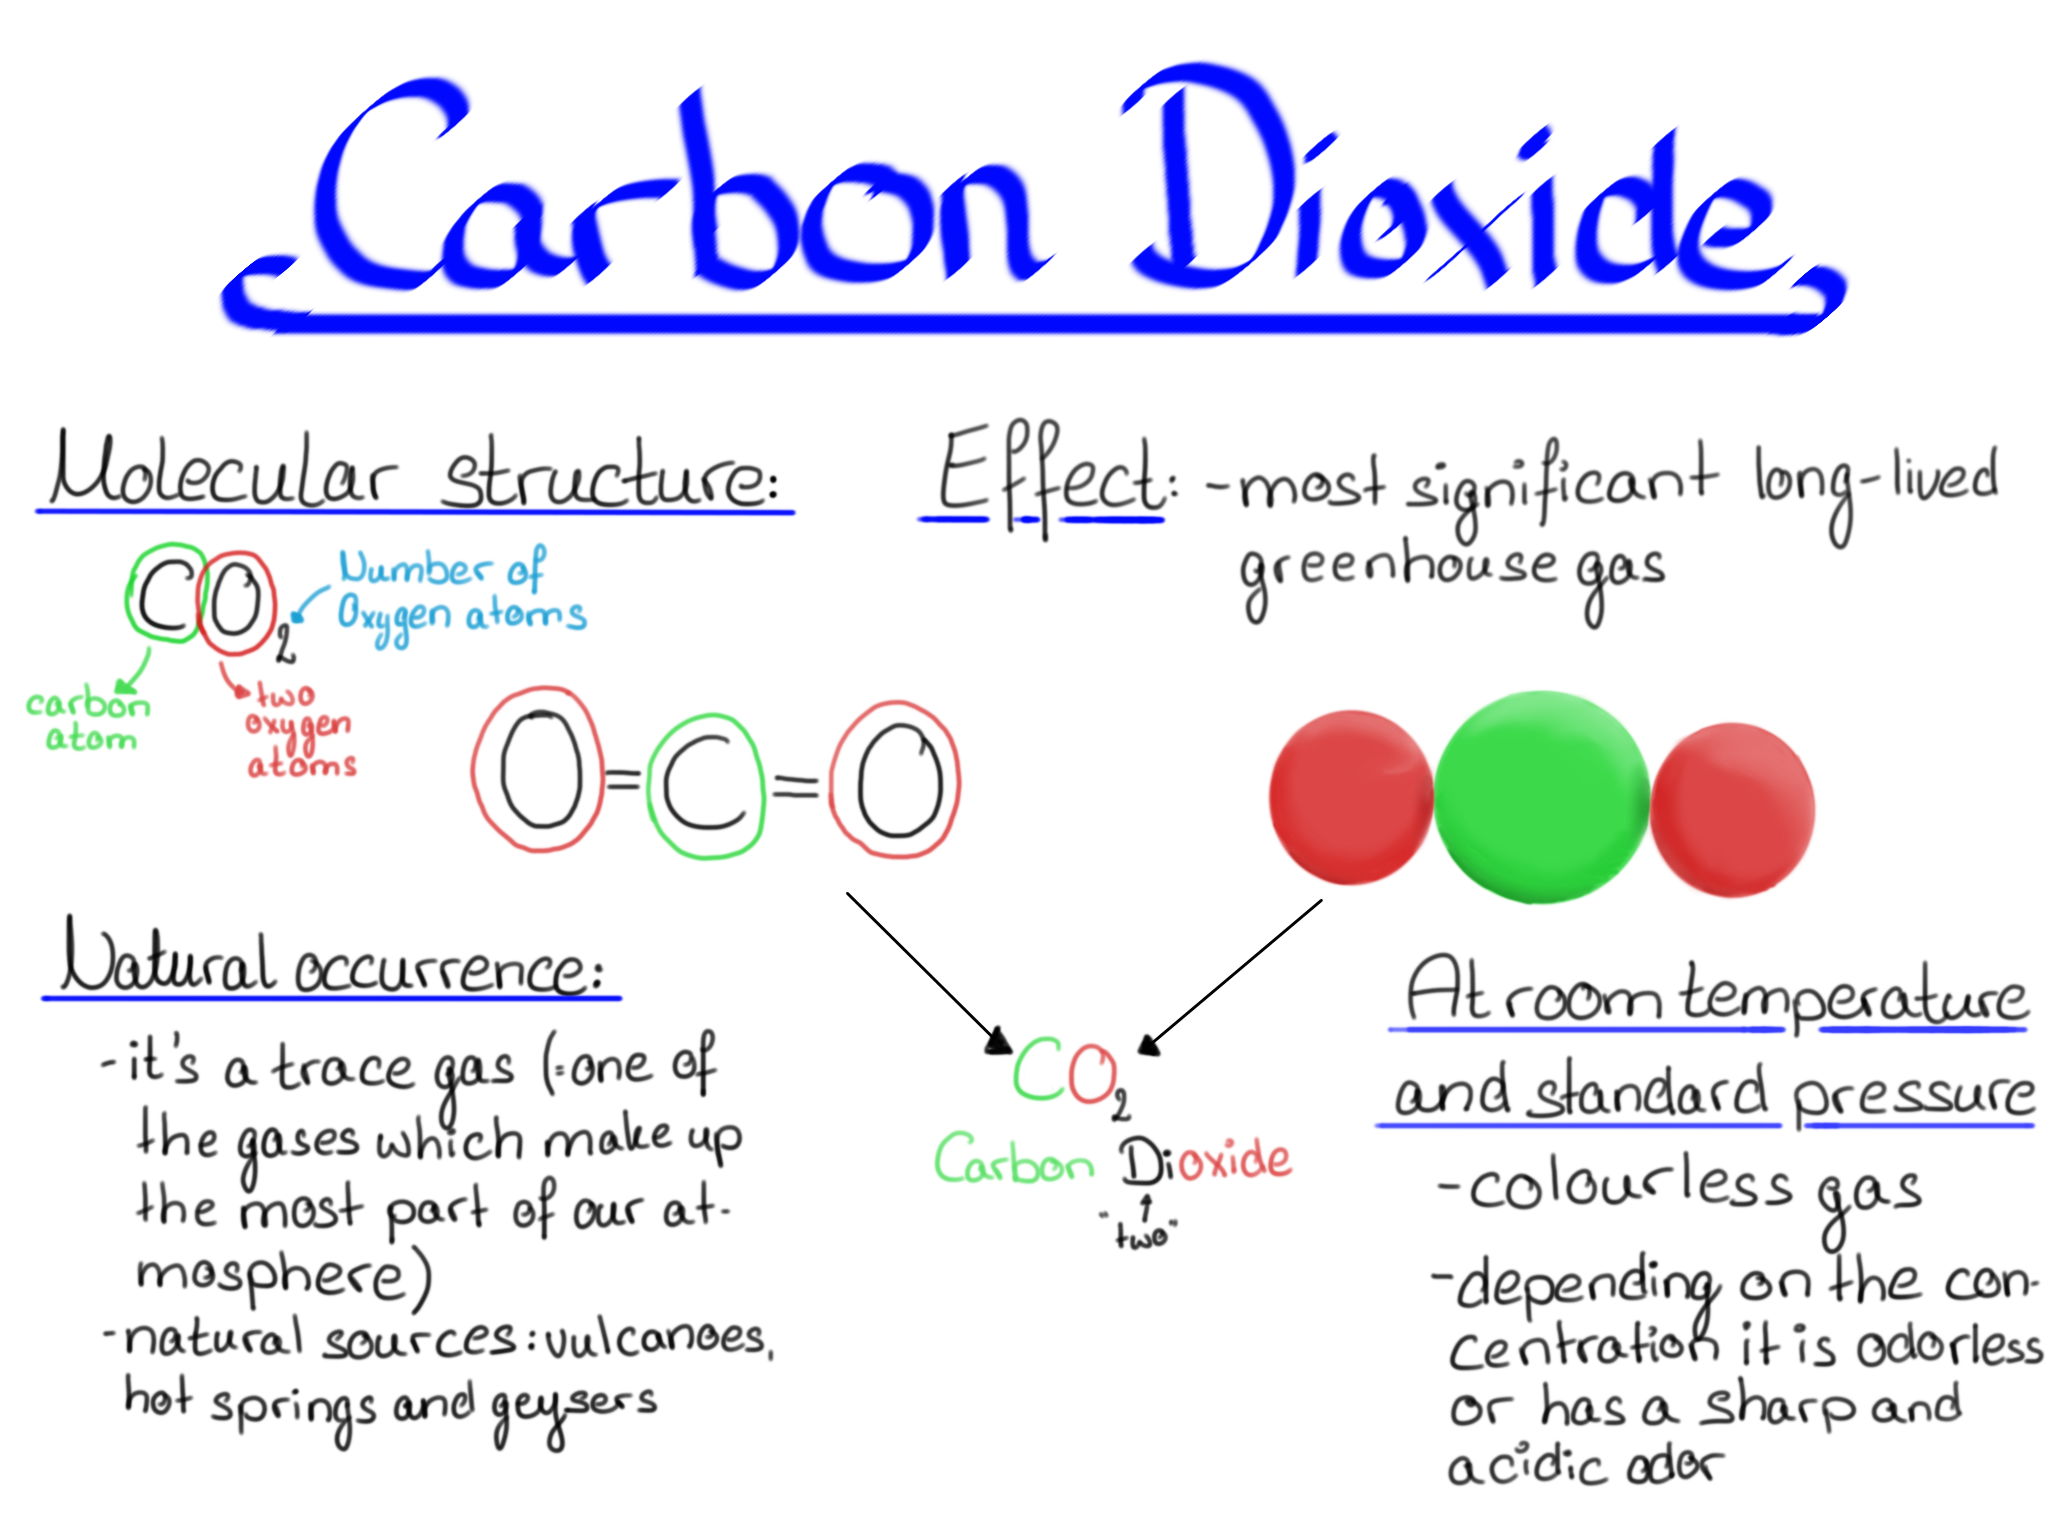 Carbon Dioxide
Molecular structure:
CO2
Number of
Oxygen atoms
carbon
atom
two
oxygen
atoms
O=C=O
Effect: -most significant long-lived
greenhouse gas
Natural occurrence:
-it's a trace gas (=one of
the gases which make up
the most part of our at-
mosphere)
-natural sources: vulcanoes,
hot springs and geysers
CO2
Carbon Dioxide
"two"
At room temperature
and standard pressure
-colourless gas
-depending on the con-
centration it is odorless
or has a sharp and
acidic odor